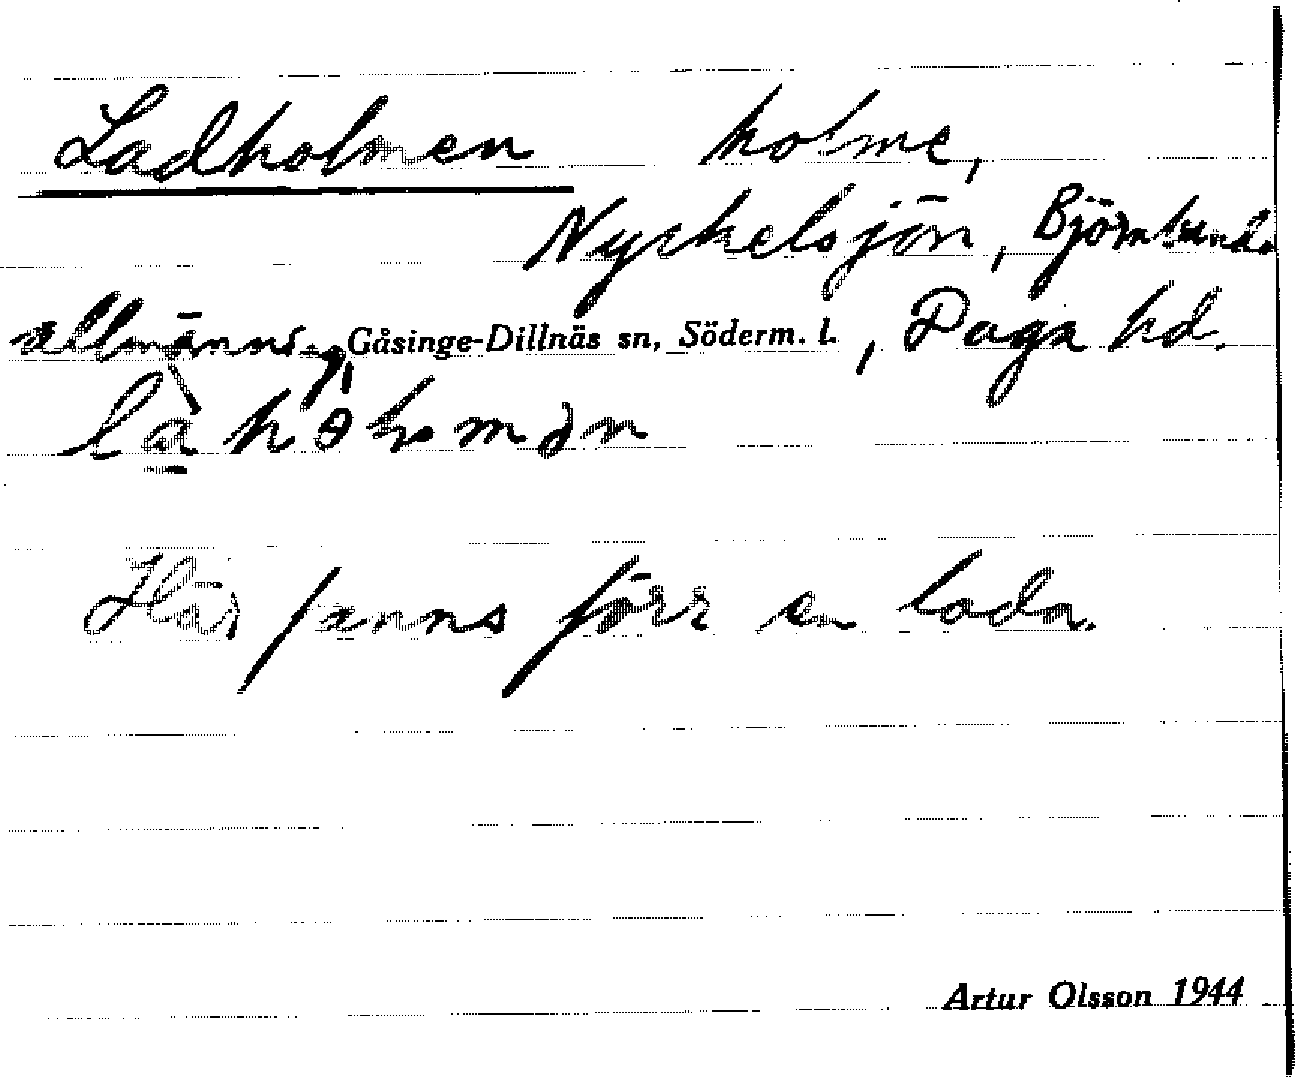 Ladholmen holme,
Nyckelsjön, Björnlunda
allmänning, Gåsinge-Dillnäs sn, Söderm. l., Daga hd.
Här fanns förr en lada.
Artur Olsson 1944